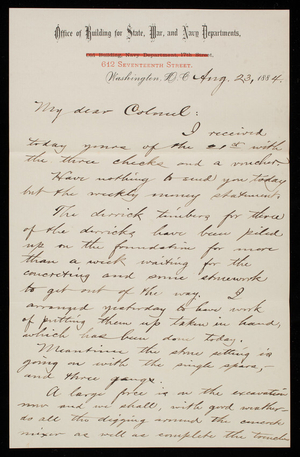 Office of Building for State, War, and Navy Departments,
Old Building, Navy Department, 17th Street,
612 SEVENTEENTH STREET.
Washington, D.C. Aug. 23, 1884.
My dear Colonel:
I received
today yours of the 21st with
the three checks and a voucher.
Have nothing to send you today
but the weekly money statement.
The derrick timbers for three
of the derricks have been piled
up on the foundation for more
than a week waiting for the
concreting and some stonework
to get out of the way. I
arranged yesterday to have work
of putting them up taken in hand,
which has been done today.
Meantime the stone setting is
going on with the single spars,
and three gangs.
A large force is on the excavation
now and we shall, with good weather
do all the digging around the concrete
mixer as well as complete the trenches